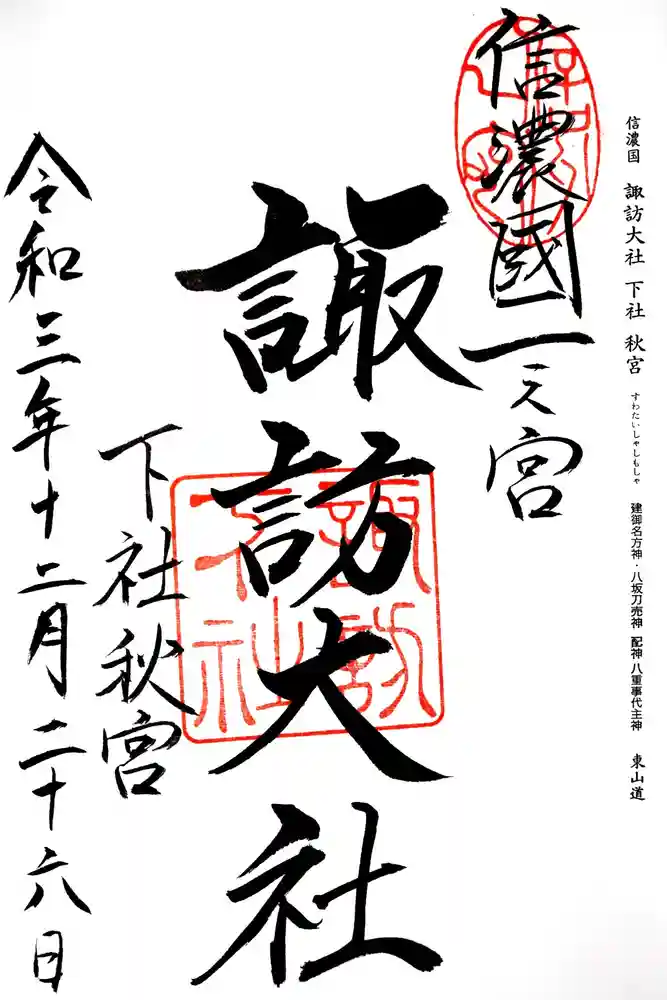 信濃国 諏訪大社 下社 秋宮 すわたいしゃしもしゃ 建御名方神・八坂刀売神 配神 八重事代主神 東山道
信濃國一之宮
諏訪大社
下社秋宮
令和三年十二月二十六日
諏訪
下社